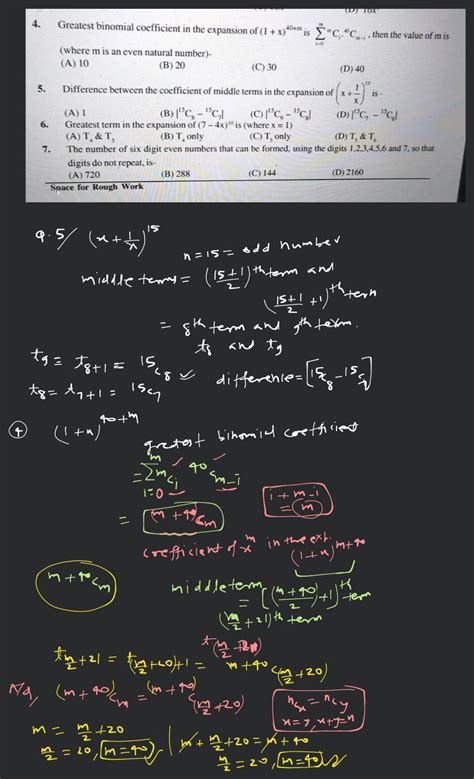 (D) 16x
4. Greatest binomial coefficient in the expansion of (1 + x)^{40+m} is \sum_{i=0}^{m} {}^{m}C_{i} . {}^{40}C_{m-i} , then the value of m is
(where m is an even natural number)-
(A) 10 (B) 20 (C) 30 (D) 40
5. Difference between the coefficient of middle terms in the expansion of (x + 1/x)^{15} is -
(A) 1 (B) |^{15}C_8 – ^{15}C_7| (C) |^{15}C_9 – ^{15}C_8| (D) |^{15}C_7 – ^{15}C_6|
6. Greatest term in the expansion of (7 – 4x)^{10} is (where x = 1)
(A) T_4 & T_5 (B) T_4 only (C) T_5 only (D) T_5 & T_6
7. The number of six digit even numbers that can be formed, using the digits 1,2,3,4,5,6 and 7, so that
digits do not repeat, is-
(A) 720 (B) 288 (C) 144 (D) 2160
Space for Rough Work
Q.5/ (x + 1/x)^{15}
n = 15 = odd number
middle terms = (15+1/2)^{th} term and
(15+1/2 + 1)^{th} term
= 8^{th} term and 9^{th} term.
t_8 and t_9
t_9 = t_{8+1} = 15_{C_8}
t_8 = t_{7+1} = 15_{C_7}
difference = [15_{C_8} - 15_{C_7}]
(4) (1+x)^{40+m}
greatest binomial coefficient
= \sum_{i=0}^{m} m_{C_i} 40_{C_{m-i}}
i + m - i
= m
= (m+40)_{C_m}
coefficient of x^m in the exp.
(1+x)^{m+40}
m+40_{C_m}
middle term
= [(m+40/2) + 1]^{th} term
(m/2 + 21)^{th} term
t_{m/2 + 21} = t_{(m/2+20)+1} = m+40_{C_{(m/2+20)}}
A/q, (m+40)_{C_m} = (m+40)_{C_{(m/2+20)}}
n_{C_x} = n_{C_y}
x = y, x+y = n
m = m/2 + 20
m/2 = 20, m = 40
m + m/2 + 20 = m + 40
m/2 = 20, m = 40